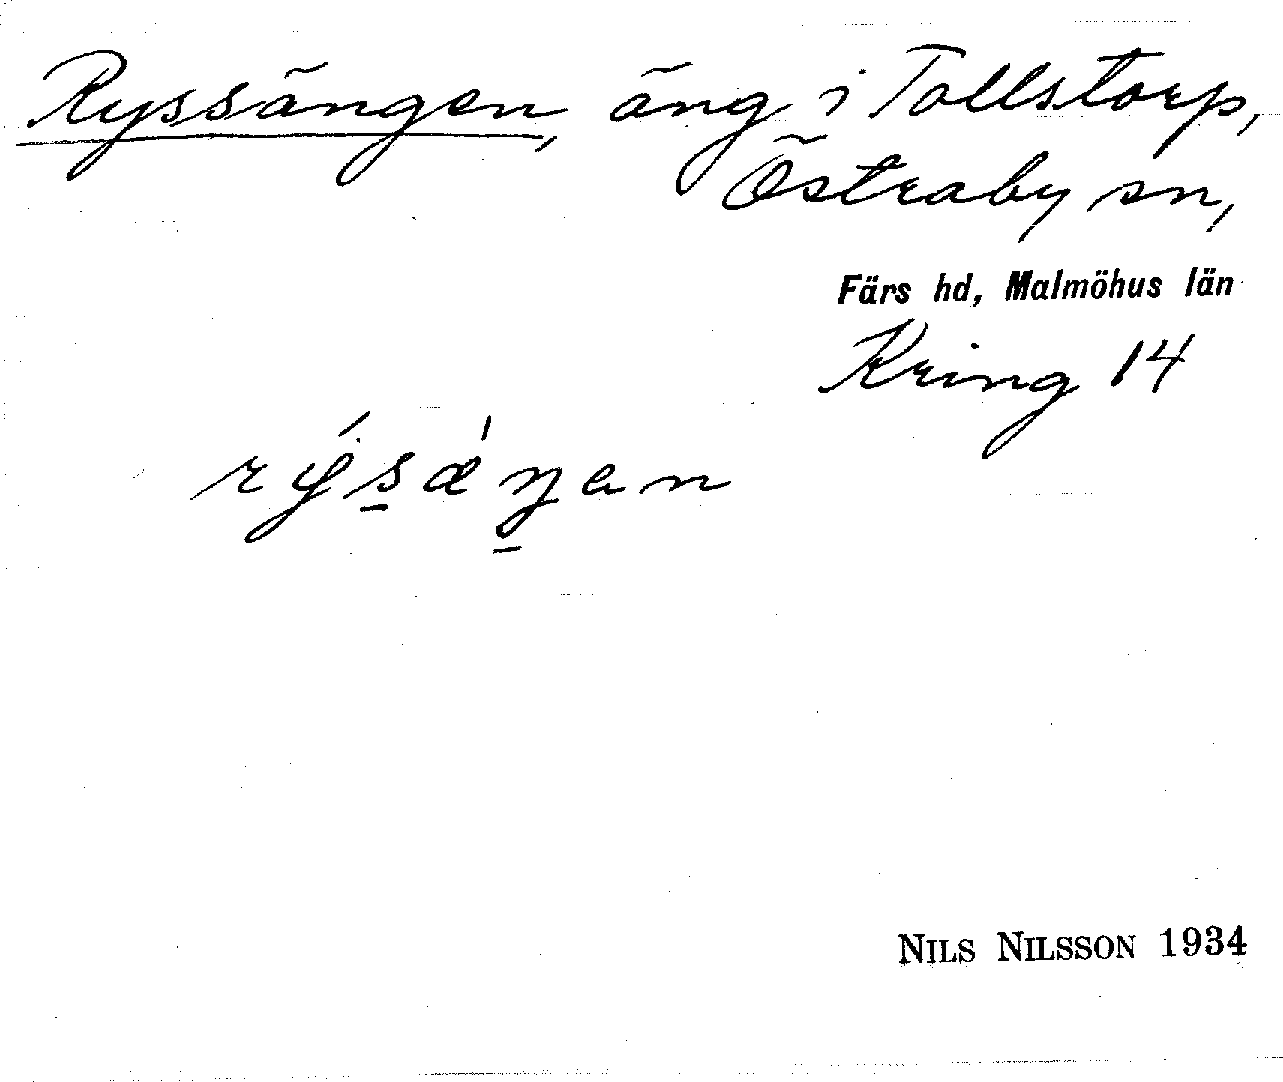 Ryssängen, äng i Tollstorp,
Östraby sn,
Färs hd, Malmöhus län
Kring 14
rýsæ̍ŋen
NILS NILSSON 1934